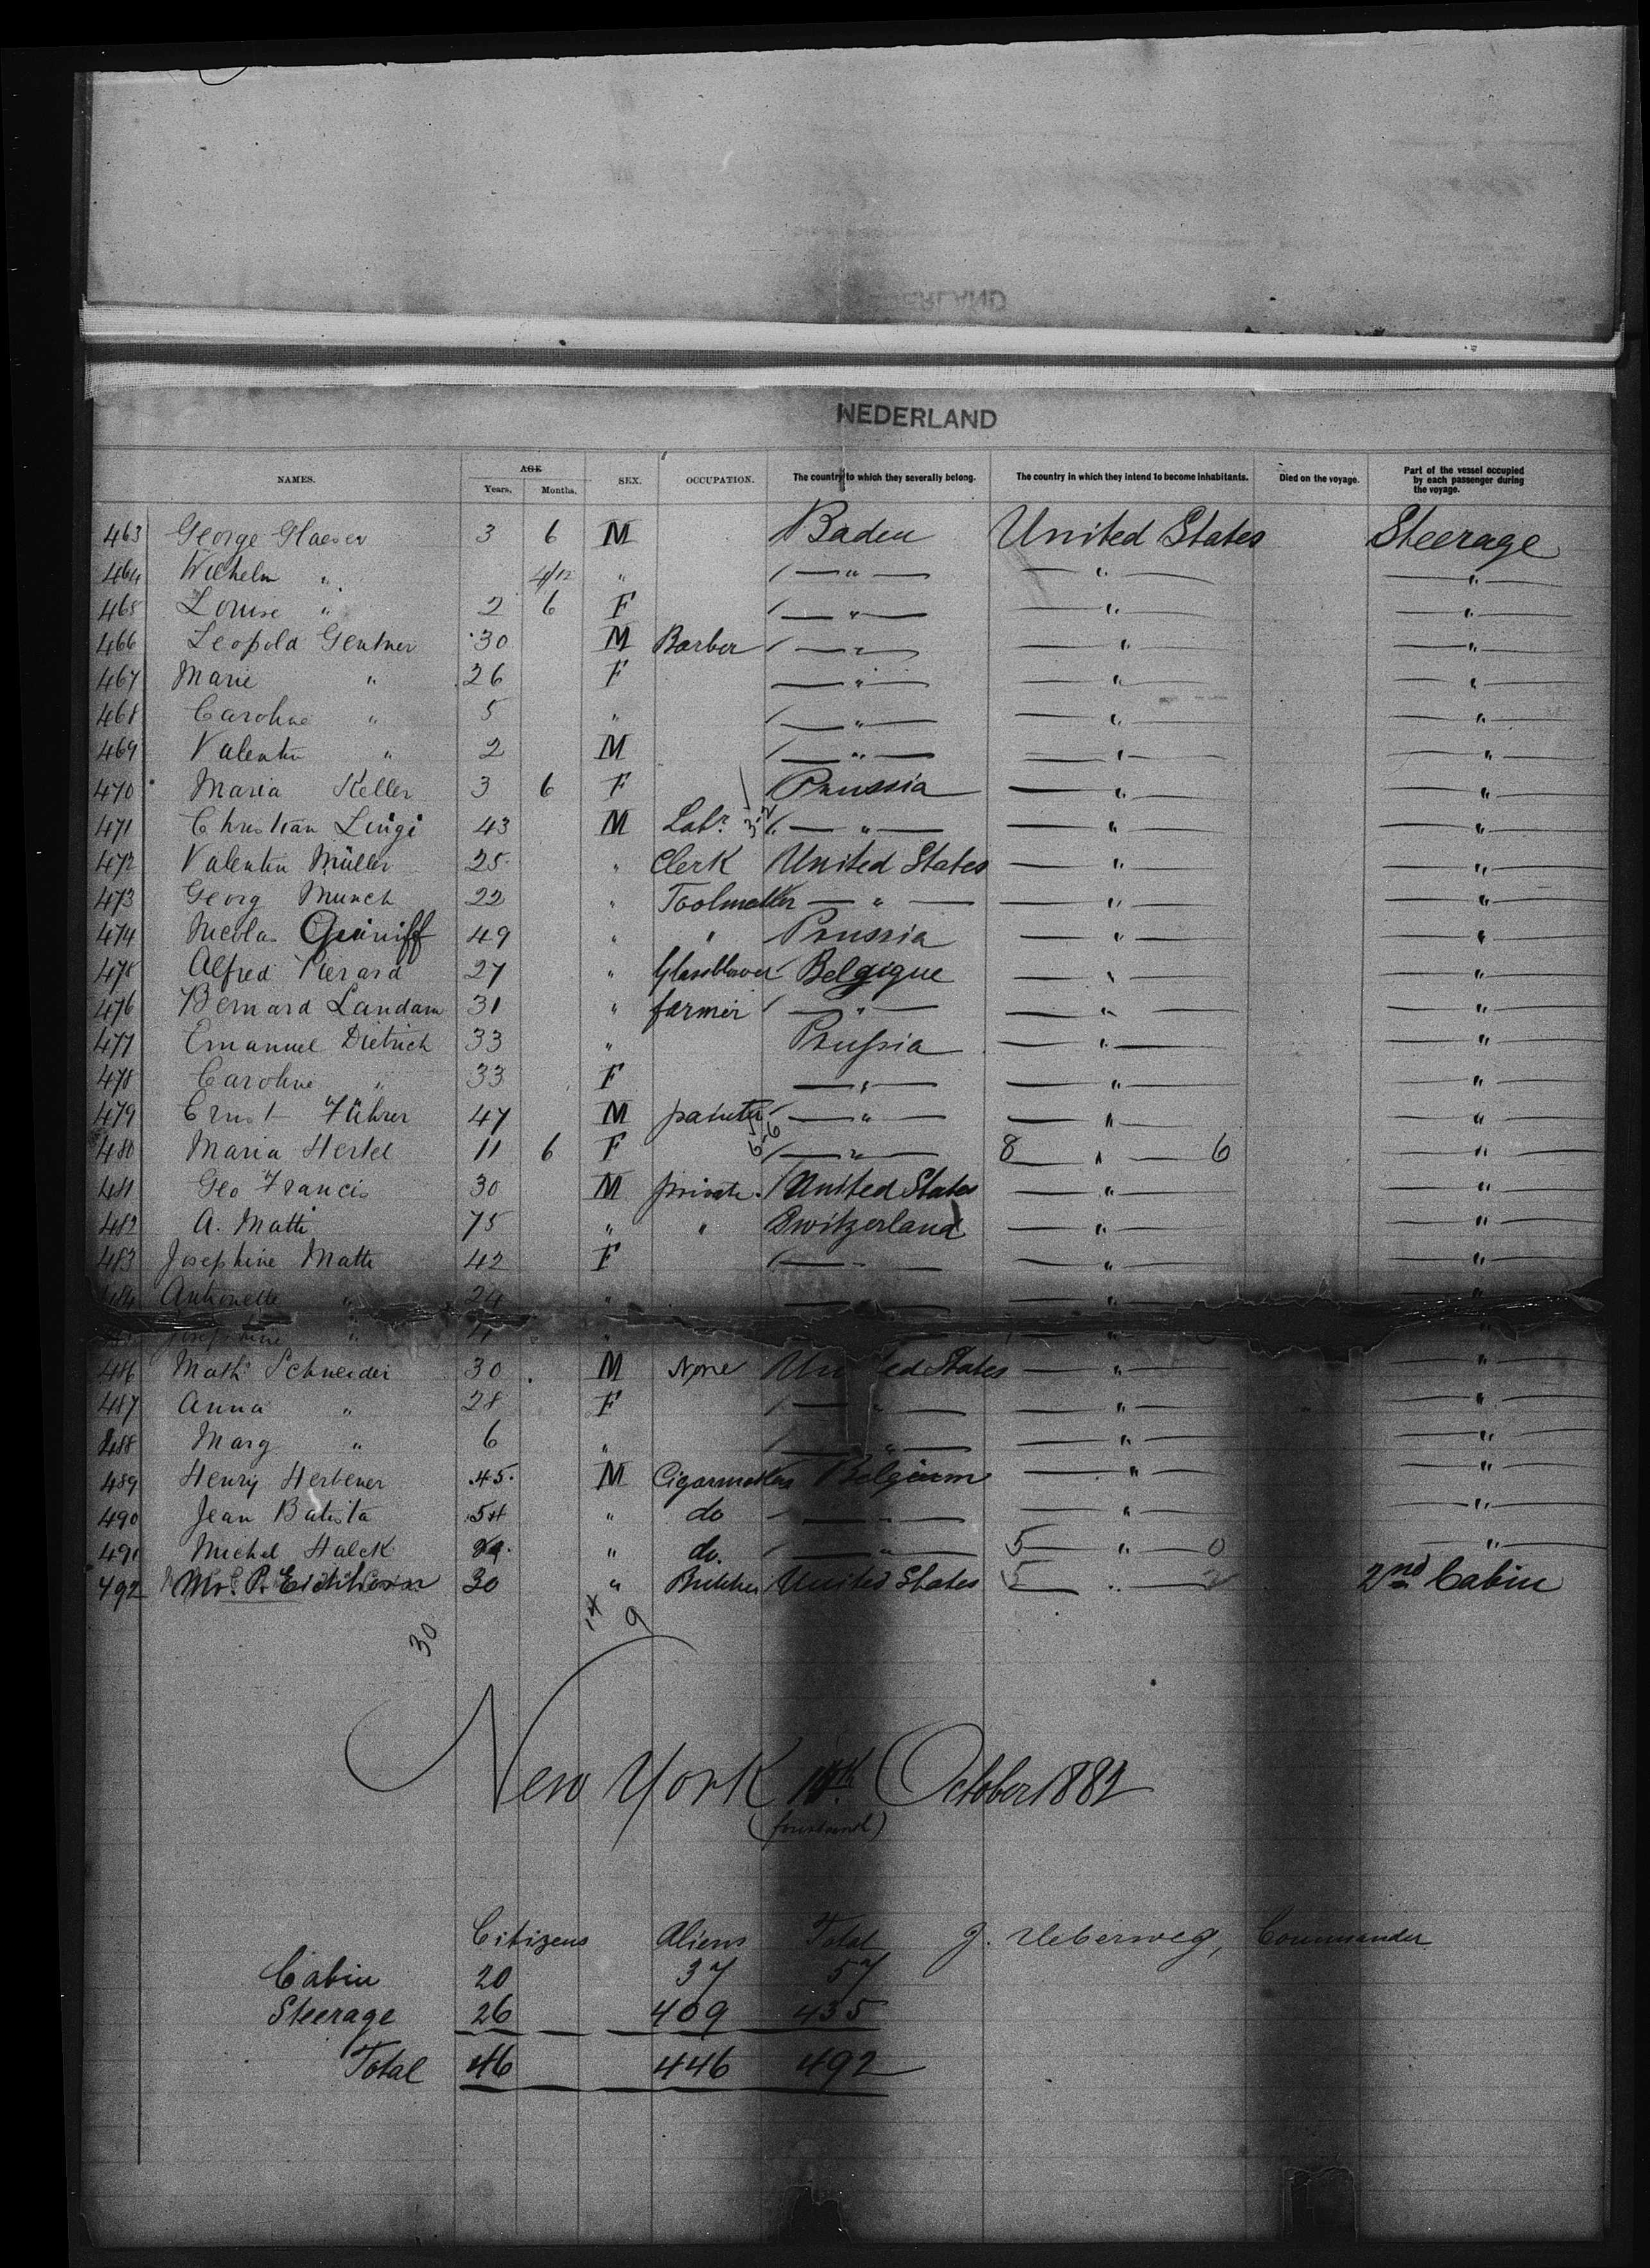 NEDERLAND
NAMES. AGE Years. Months. SEX. OCCUPATION. The country to which they severally belong. The country in which they intend to become inhabitants. Died on the voyage. Part of the vessel occupied by each passenger during the voyage.
463 George Glaeser 3 6 M Baden United States Steerage
464 Wilhelm " 4/12 " " " "
465 Louise " 2 6 F " " "
466 Leopold Gentner 30 M Barber " " "
467 Marie " 26 F " " "
468 Caroline " 5 " " " "
469 Valentin " 2 M " " "
470 Maria Keller 3 6 F Prussia " "
471 Christian 43 M Labr. " " "
472 Valentin Müller 25 " Clerk United States " "
473 Georg Munch 22 " Toolmaker " " "
474 Nicolas 49 " " Prussia " "
475 Alfred Pierard 27 " Glassblower Belgique " "
476 Bernard Landam 31 " farmer " " "
477 Emanuel Dietrich 33 " Prussia " "
478 Caroline " 33 F " " "
479 Ernst Führer 47 M painter " " "
480 Maria Hertel 11 6 F " 8 " 6 "
481 Geo Francis 30 M private. United States " "
482 A. Matti 75 " " Switzerland " "
483 Josephine Matti 42 F " " "
484 Antonette " 24 " " " "
Josephine " 11 " " "
486 Math. Schneider 30 M None United States " "
487 Anna " 28 F " " "
488 Marg " 6 " " " "
489 Henry Herbener 45 M Cigarmaker Belgium " "
490 Jean Batista 54 " do " " "
491 Michel Halek " do. " 5 " 0 "
492 Mr. P. 30 " Butcher United States 5 " 2nd Cabin
30 14 9
New York October 1882
J. Ueberweg, Commander
Citizens Aliens Total
Cabin 20 37 57
Steerage 26 409 435
Total 46 446 492